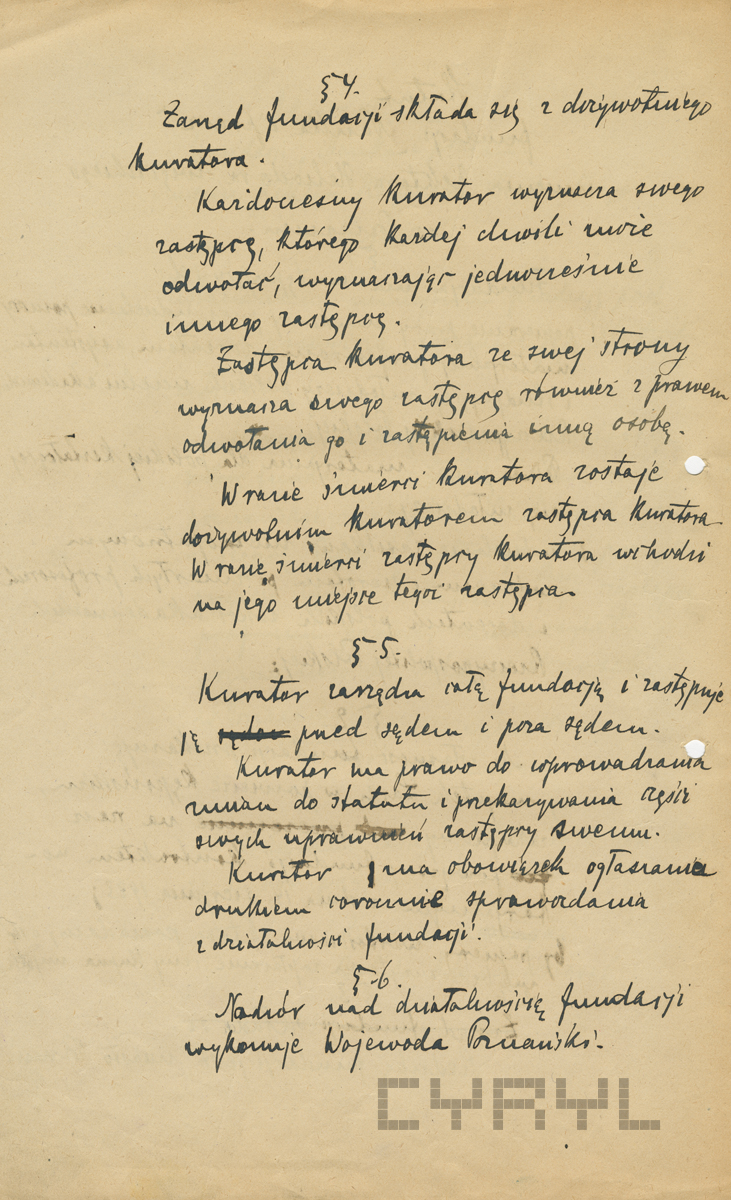 § 4.
Zarząd fundacji składa się z dożywotniego
kuratora.
Każdoczesny kurator wyznacza swego
zastępcę, którego każdej chwili może
odwołać, wyznaczając jednocześnie
innego zastępcę.
Zastępca kuratora ze swej strony
wyznacza swego zastępcę również z prawem
odwołania go i zastąpienia inną osobą.
W razie śmierci kuratora zostaje
dożywotnim kuratorem zastępca kuratora.
W razie śmierci zastępcy kuratora wchodzi
na jego miejsce tegoż zastępca.
§ 5.
Kurator zarządza całą fundacją i zastępuje
ją przed sądem i poza sądem.
Kurator ma prawo do wprowadzania
zmian do statutu i przekazywania części
swych uprawnień zastępcy swemu.
Kurator ma obowiązek ogłaszania
drukiem corocznie sprawozdania
z działalności fundacji.
§ 6.
Nadzór nad działalnością fundacji
wykonuje Wojewoda Poznański.
CYRYL